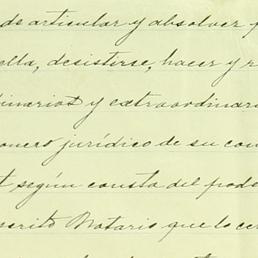 de articular y absolver p
ella, desistirse, hacer y r
dinarios y extraordinari
onero jurídico de su con
t según consta del pode
scrito Notario que lo cer